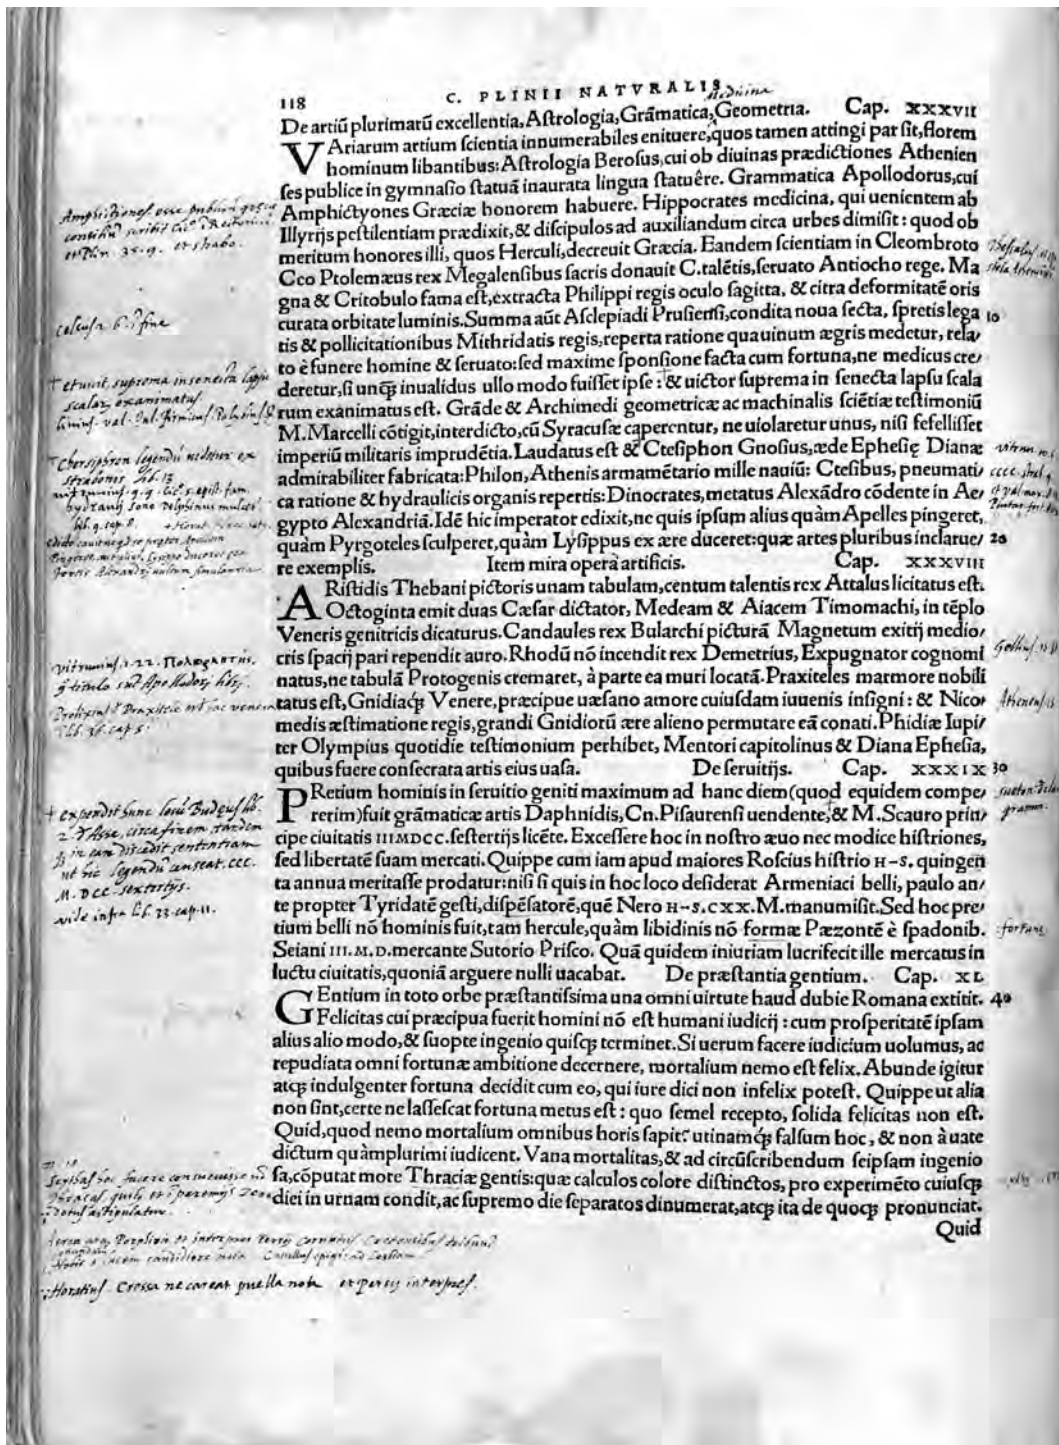 118 C. PLINII NATVRALIS
medicina
De artiū plurimarū excellentia, Astrologia, Grāmatica, Geometria. Cap. XXXVII
VAriarum artium scientia innumerabiles enituere, quos tamen attingi par sit, florem
hominum libantibus: Astrologia Berosus, cui ob diuinas prædictiones Athenien
ses publice in gymnasio statuā inaurata lingua statuêre. Grammatica Apollodorus, cui
Amphictyones Græciæ honorem habuere. Hippocrates medicina, qui uenientem ab
Illyrijs pestilentiam prædixit, & discipulos ad auxiliandum circa urbes dimisit: quod ob
meritum honores illi, quos Herculi, decreuit Græcia. Eandem scientiam in Cleombroto
Ceo Ptolemæus rex Megalensibus sacris donauit C. talētis, seruato Antiocho rege. Ma
gna & Critobulo fama est, extracta Philippi regis oculo sagitta, & citra deformitatē oris
curata orbitate luminis. Summa aūt Asclepiadi Prusiensi, condita noua secta, spretis lega 10
tis & pollicitationibus Mithridatis regis, reperta ratione qua uinum ægris medetur, rela/
to è funere homine & seruato: sed maxime sponsione facta cum fortuna, ne medicus cre/
deretur, si unq̄ inualidus ullo modo fuisset ipse: & uictor suprema in senecta lapsu scala
rum exanimatus est. Grāde & Archimedi geometricæ ac machinalis sciētiæ testimoniū
M. Marcelli cōtigit, interdicto, cū Syracusæ caperentur, ne uiolaretur unus, nisi fefellisset
imperiū militaris imprudētia. Laudatus est & Ctesiphon Gnosius, æde Ephesię Dianæ
admirabiliter fabricata: Philon, Athenis armamētario mille nauiū: Ctesibus, pneumati/
ca ratione & hydraulicis organis repertis: Dinocrates, metatus Alexādro cōdente in Ae/
gypto Alexandriā. Idē hic imperator edixit, ne quis ipsum alius quàm Apelles pingeret,
quàm Pyrgoteles sculperet, quàm Lysippus ex ære duceret: quæ artes pluribus inclarue/ 20
re exemplis. Item mira opera artificis. Cap. XXXVIII
ARistidis Thebani pictoris unam tabulam, centum talentis rex Attalus licitatus est.
Octoginta emit duas Cæsar dictator, Medeam & Aiacem Timomachi, in tēplo
Veneris genitricis dicaturus. Candaules rex Bularchi picturā Magnetum exitij medio/
cris spacij pari rependit auro. Rhodū nō incendit rex Demetrius, Expugnator cognomi
natus, ne tabulā Protogenis cremaret, à parte ea muri locatā. Praxiteles marmore nobili
tatus est, Gnidiaq̄ Venere, præcipue uæsano amore cuiusdam iuuenis insigni: & Nico/
medis æstimatione regis, grandi Gnidiorū ære alieno permutare eā conati. Phidiæ Iupi/
ter Olympius quotidie testimonium perhibet, Mentori capitolinus & Diana Ephesia,
quibus fuere consecrata artis eius uasa. De seruitijs. Cap. XXXIX 30
PRetium hominis in seruitio geniti maximum ad hanc diem (quod equidem compe/
rerim) fuit grāmaticæ artis Daphnidis, Cn. Pisaurensi uendente, & M. Scauro prin/
cipe ciuitatis IIIMDCC. sestertijs licēte. Excessere hoc in nostro æuo nec modice histriones,
sed libertatē suam mercati. Quippe cum iam apud maiores Roscius histrio H-S. quingen
ta annua meritasse prodatur: nisi si quis in hoc loco desiderat Armeniaci belli, paulo an/
te propter Tyridatē gesti, dispēsatorē, quē Nero H-S. CXX. M. manumisit. Sed hoc pre/
tium belli nō hominis fuit, tam hercule, quàm libidinis nō formæ Pæzontē è spadonib.
Seiani III. M. D. mercante Sutorio Prisco. Quā quidem iniuriam lucrifecit ille mercatus in
luctu ciuitatis, quoniā arguere nulli uacabat. De præstantia gentium. Cap. XL
GEntium in toto orbe præstantissima una omni uirtute haud dubie Romana extitit. 40
Felicitas cui præcipua fuerit homini nō est humani iudicij: cum prosperitatē ipsam
alius alio modo, & suopte ingenio quisq̄ terminet. Si uerum facere iudicium uolumus, ac
repudiata omni fortunæ ambitione decernere, mortalium nemo est felix. Abunde igitur
atq̄ indulgenter fortuna decidit cum eo, qui iure dici non infelix potest. Quippe ut alia
non sint, certe ne lassescat fortuna metus est: quo semel recepto, solida felicitas non est.
Quid, quod nemo mortalium omnibus horis sapit? utinamq̄ falsum hoc, & non à uate
dictum quàmplurimi iudicent. Vana mortalitas, & ad circūscribendum seipsam ingenio
sa, cōputat more Thraciæ gentis: quæ calculos colore distinctos, pro experimēto cuiusq̄
diei in urnam condit, ac supremo die separatos dinumerat, atq̄ ita de quoq̄ pronunciat.
Quid
et Plin. 35. 9. et strabo.
celsus 6. ī fine
scalarū exanimatus
lib. 9. cap. 8.
lib. 36. cap. 5
M. DCC sextertijs.
vide infra lib. 33. cap. 11.
Horatius. Cressa ne careat puella nota et persij interpres.